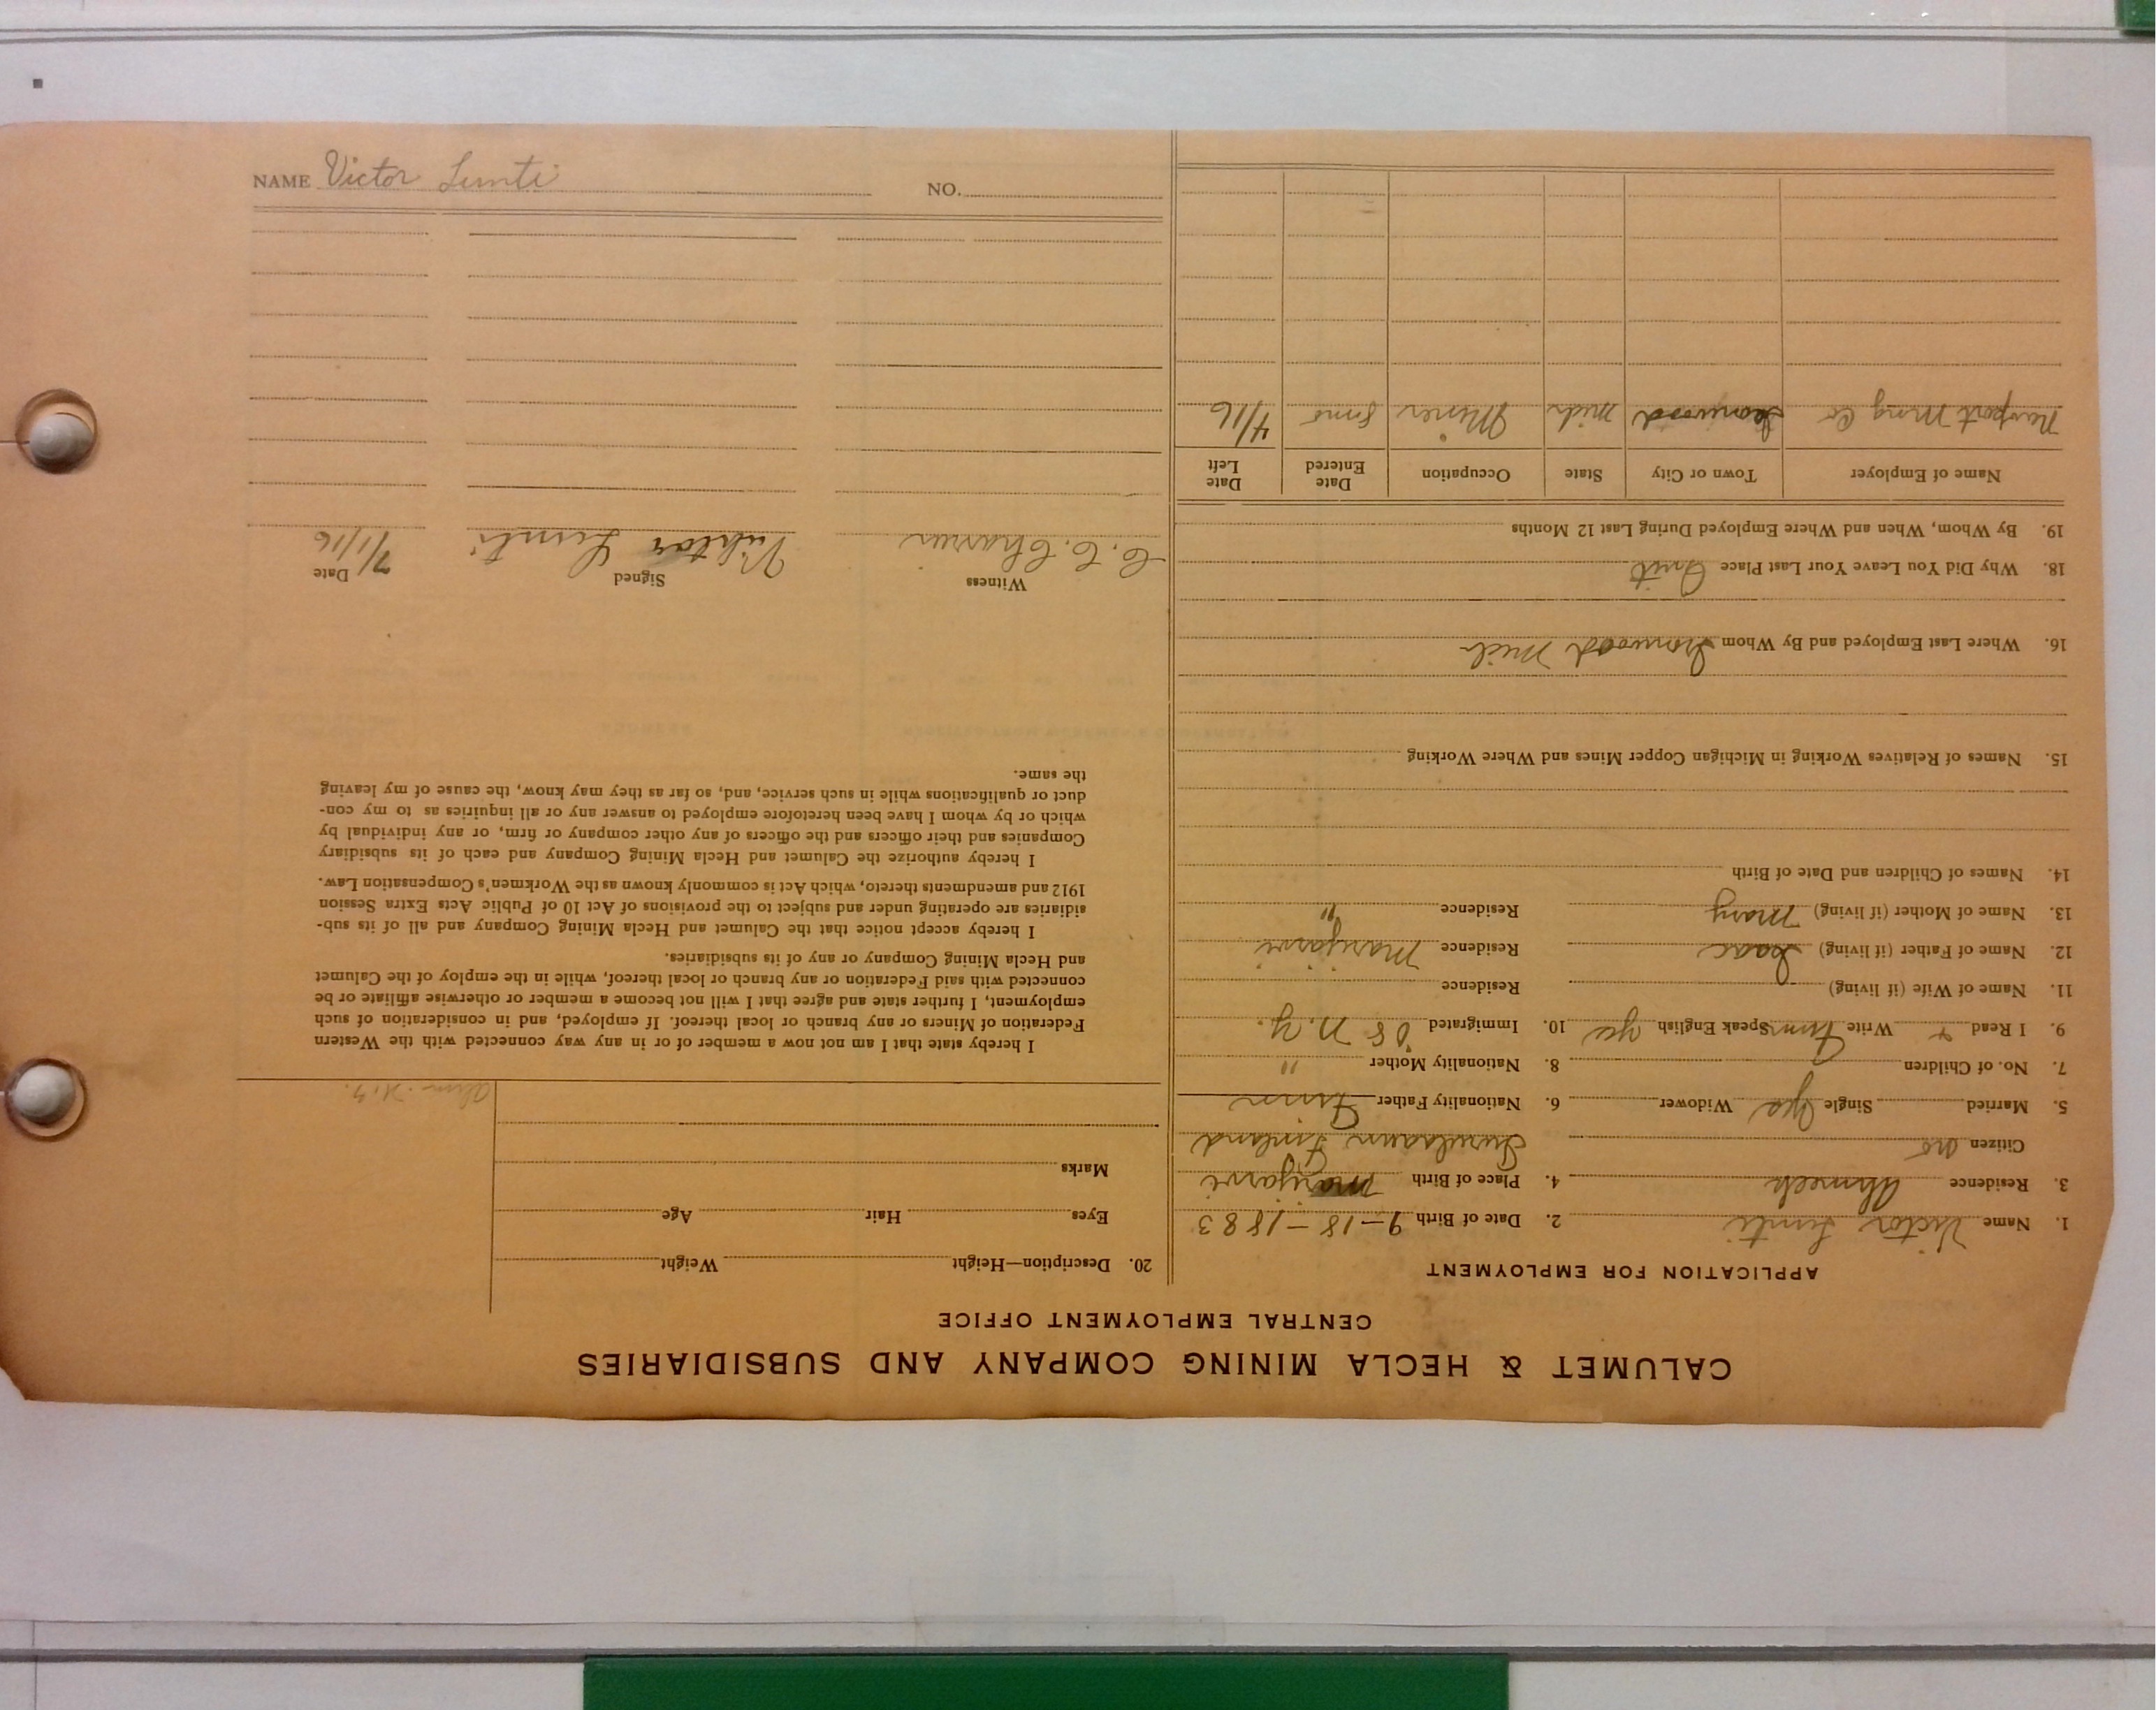 CALUMET & HECLA MINING COMPANY AND SUBSIDIARIES
CENTRAL EMPLOYMENT OFFICE
APPLICATION FOR EMPLOYMENT
1. Name Victor Limti 2. Date of Birth 9-18-1883
3. Residence Ahmeek 4. Place of Birth
Citizen no Finland
5. Married Single yes Widower 6. Nationality Father Finn
7. No. of Children 8. Nationality Mother "
9. I Read & Write Finn Speak English yes 10. Immigrated 08 N.Y.
11. Name of Wife (if living) Residence
12. Name of Father (if living) Isaac Residence Marijarvi
13. Name of Mother (if living) Mary Residence "
14. Names of Children and Date of Birth
15. Names of Relatives Working in Michigan Copper Mines and Where Working
16. Where Last Employed and By Whom Ironwood Mich
18. Why Did You Leave Your Last Place Quit
19. By Whom, When and Where Employed During Last 12 Months
Name of Employer Town or City State Occupation Date Entered Date Left
Newport Mng Co Ironwood Mich Miner 4/16
20. Description—Height Weight
Eyes Hair Age
Marks
I hereby state that I am not now a member of or in any way connected with the Western
Federation of Miners or any branch or local thereof. If employed, and in consideration of such
employment, I further state and agree that I will not become a member or otherwise affiliate or be
connected with said Federation or any branch or local thereof, while in the employ of the Calumet
and Hecla Mining Company or any of its subsidiaries.
I hereby accept notice that the Calumet and Hecla Mining Company and all of its sub-
sidiaries are operating under and subject to the provisions of Act 10 of Public Acts Extra Session
1912 and amendments thereto, which Act is commonly known as the Workmen's Compensation Law.
I hereby authorize the Calumet and Hecla Mining Company and each of its subsidiary
Companies and their officers and the officers of any other company or firm, or any individual by
which or by whom I have been heretofore employed to answer any or all inquiries as to my con-
duct or qualifications while in such service, and, so far as they may know, the cause of my leaving
the same.
Witness Signed Date
Vihtor Limti 7/1/16
NAME Victor Limti NO.